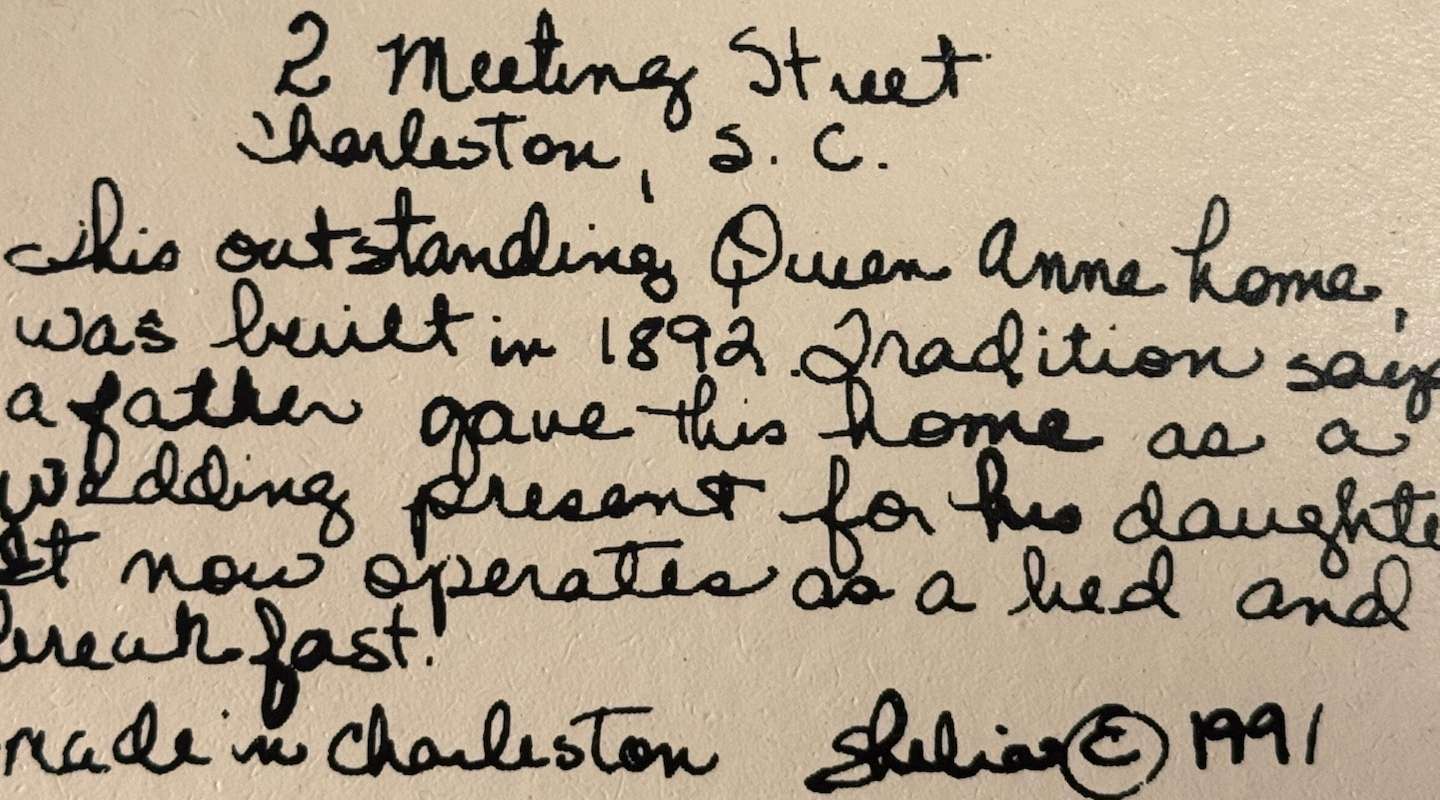 2 Meeting Street
Charleston, S. C.
This outstanding Queen Anne home,
was built in 1892. Tradition says
a father gave this home as a
wedding present for his daughte
It now operates as a bed and
breakfast.
made in Charleston Shelia © 1991